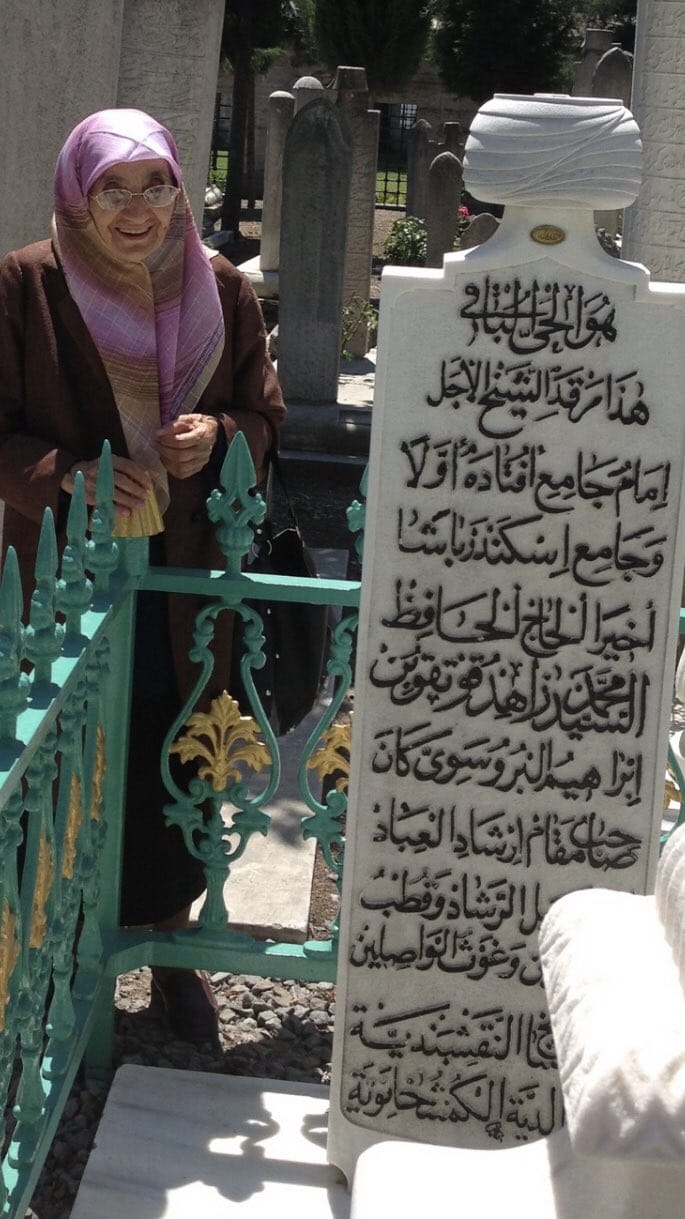 هُوَ الْحَيُّ الْبَاقِي
هٰذَا مَرْقَدُ الشَّيْخِ الْأَجَلِّ
اِمَامُ جَامِعِ اُفْتَادَهْ اَوَّلَا
وَجَامِعِ اِسْكَنْدَرْ بَاشَا
أخيرا الحاج الحافظ
السيد محمد زاهد قوتقو بن
ابراهيم البروسوي كان
صاحب مقام ارشاد العباد
الرشاد وقطب
وغوث الواصلين
النقشبندية
الكمشخانوية